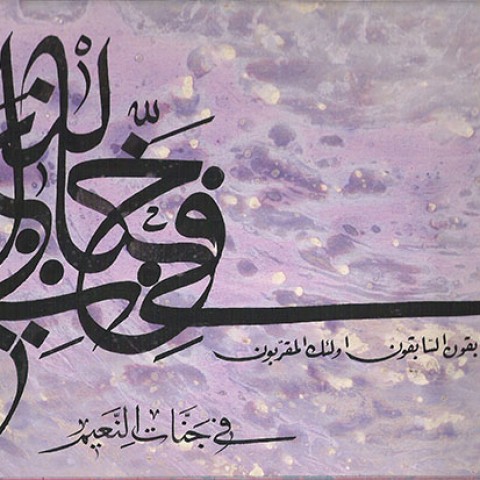 في جنّات
بقون السّابقون اولئك المقربون
في جنّات النّعيم